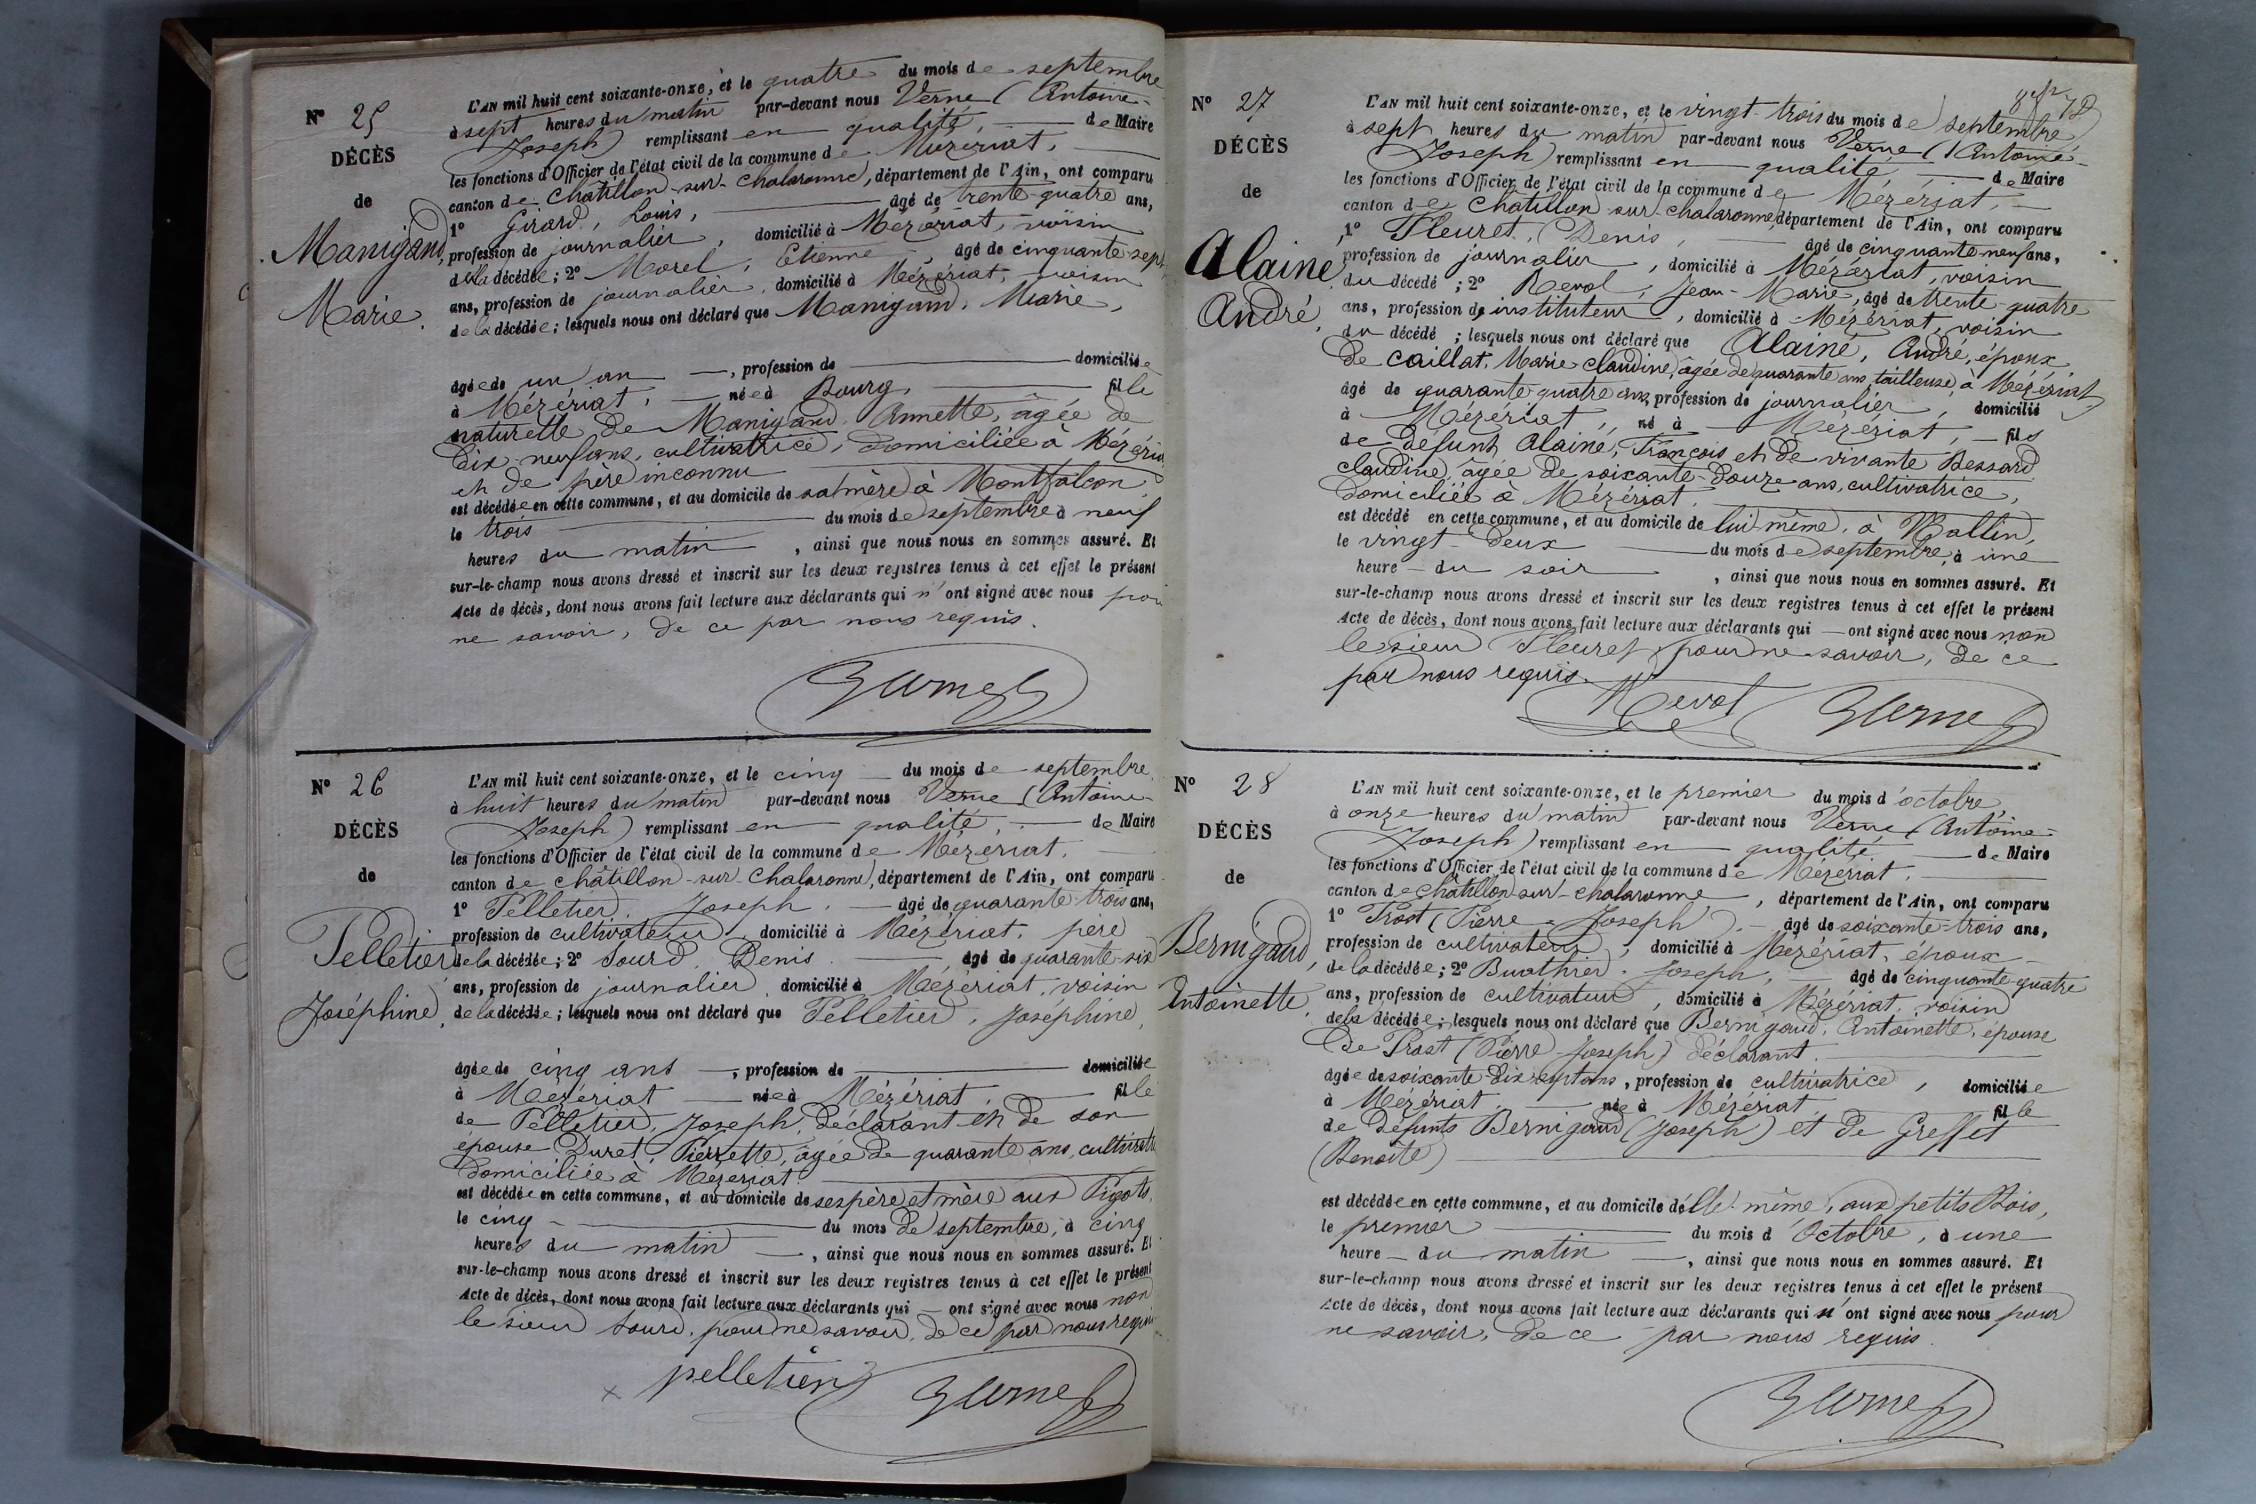 N° 25
DÉCÈS
de
Manigand,
Marie.
L'AN mil huit cent soixante-onze, et le quatre du mois de septembre
à sept heures du matin par-devant nous Verne (Antoine-
Joseph) remplissant en qualité, de Maire
les fonctions d'Officier de l'état civil de la commune de Mézériat,
canton de Chatillon-sur-Chalaronne, département de l'Ain, ont comparu
1° Girard, Louis, âgé de trente-quatre ans,
profession de journalier, domicilié à Mézériat, voisin
de la décédée; 2° Morel, Etienne, âgé de cinquante-sept
ans, profession de journalier, domicilié à Mézériat, voisin
de la décédée; lesquels nous ont déclaré que Manigand, Marie,
âgée de un an, profession de domiciliée
à Mézériat, née à Bourg, fille
naturelle de Manigand, Annette, âgée de
dix-neuf ans, cultivatrice, domiciliée à Mézériat
et de père inconnu
est décédée en cette commune, et au domicile de sa mère à Montfalcon
le trois du mois de septembre à neuf
heures du matin, ainsi que nous nous en sommes assuré. Et
sur-le-champ nous avons dressé et inscrit sur les deux registres tenus à cet effet le présent
Acte de décès, dont nous avons fait lecture aux déclarants qui n'ont signé avec nous pour
ne savoir, de ce par nous requis.
Verne
N° 26
DÉCÈS
de
Pelletier
Joséphine,
L'AN mil huit cent soixante-onze, et le cinq du mois de septembre,
à huit heures du matin par-devant nous Verne (Antoine-
Joseph) remplissant en qualité, de Maire
les fonctions d'Officier de l'état civil de la commune de Mézériat.
canton de Châtillon-sur-Chalaronne, département de l'Ain, ont comparu
1° Pelletier, Joseph, âgé de quarante-trois ans,
profession de cultivateur, domicilié à Mézériat, père
de la décédée; 2° Sourd, Denis. âgé de quarante-six
ans, profession de journalier, domicilié à Mézériat, voisin
de la décédée; lesquels nous ont déclaré que Pelletier, Joséphine,
âgée de cinq ans, profession de domiciliée
à Mézériat née à Mézériat, fille
de Pelletier, Joseph, déclarant et de son
épouse Duret, Pierrette, âgée de quarante ans, cultivatr
domiciliée à Mézériat.
est décédée en cette commune, et au domicile de ses père et mère aux Pigots,
le cinq du mois de septembre, à cinq
heures du matin, ainsi que nous nous en sommes assuré. Et
sur-le-champ nous avons dressé et inscrit sur les deux registres tenus à cet effet le présent
Acte de décès, dont nous avons fait lecture aux déclarants qui — ont signé avec nous non
le sieur Sourd, pour ne savoir, de ce par nous requis
pelletier Verne
N° 27
DÉCÈS
de
Alaine,
André,
L'AN mil huit cent soixante-onze, et le vingt-trois du mois de septembre
à sept heures du matin par-devant nous Verne (Antoine-
Joseph) remplissant en qualité, de Maire
les fonctions d'Officier de l'état civil de la commune de Mézériat,
canton de Châtillon-sur-Chalaronne, département de l'Ain, ont comparu
1° Fleuret, Denis, âgé de cinquante-neuf ans,
profession de journalier, domicilié à Mézériat, voisin
du décédé; 2° Revol, Jean-Marie, âgé de trente-quatre
ans, profession de instituteur, domicilié à Mézériat, voisin
du décédé; lesquels nous ont déclaré que Alainé, André, époux
de Caillat, Marie-Claudine, âgée de quarante ans, tailleuse, à Mézériat,
âgé de quarante-quatre ans, profession de journalier, domicilié
à Mézériat, né à Mézériat, fils
de défunt Alainé, François et de vivante Bessard
Claudine, âgée de soixante-douze ans, cultivatrice,
domiciliée à Mézériat.
est décédé en cette commune, et au domicile de lui-même, à Wallin,
le vingt-deux du mois de septembre, à une
heure du soir, ainsi que nous nous en sommes assuré. Et
sur-le-champ nous avons dressé et inscrit sur les deux registres tenus à cet effet le présent
Acte de décès, dont nous avons fait lecture aux déclarants qui — ont signé avec nous non
le sieur Fleuret, pour ne savoir, de ce
par nous requis.
Revol Verne
N° 28
DÉCÈS
de
Bernigaud,
Antoinette,
L'AN mil huit cent soixante-onze, et le premier du mois d'octobre,
à onze heures du matin par-devant nous Verne (Antoine-
Joseph) remplissant en qualité de Maire
les fonctions d'Officier de l'état civil de la commune de Mézériat.
canton de Châtillon-sur-Chalaronne, département de l'Ain, ont comparu
1° Prost (Pierre-Joseph), âgé de soixante-trois ans,
profession de cultivateur, domicilié à Mézériat, époux
de la décédée; 2° Buathier, Joseph, âgé de cinquante-quatre
ans, profession de cultivateur, domicilié à Mézériat, voisin
de la décédée; lesquels nous ont déclaré que Bernigaud, Antoinette, épouse
de Prost (Pierre-Joseph) déclarant.
âgée de soixante-dix-sept ans, profession de cultivatrice, domiciliée
à Mézériat née à Mézériat, fille
de défunts Bernigaud (Joseph) et de Greffet
(Benoîte)
est décédée en cette commune, et au domicile d'elle-même, aux petits Bois,
le premier du mois d'Octobre, à une
heure du matin, ainsi que nous nous en sommes assuré. Et
sur-le-champ nous avons dressé et inscrit sur les deux registres tenus à cet effet le présent
Acte de décès, dont nous avons fait lecture aux déclarants qui n'ont signé avec nous pour
ne savoir, de ce par nous requis.
Verne